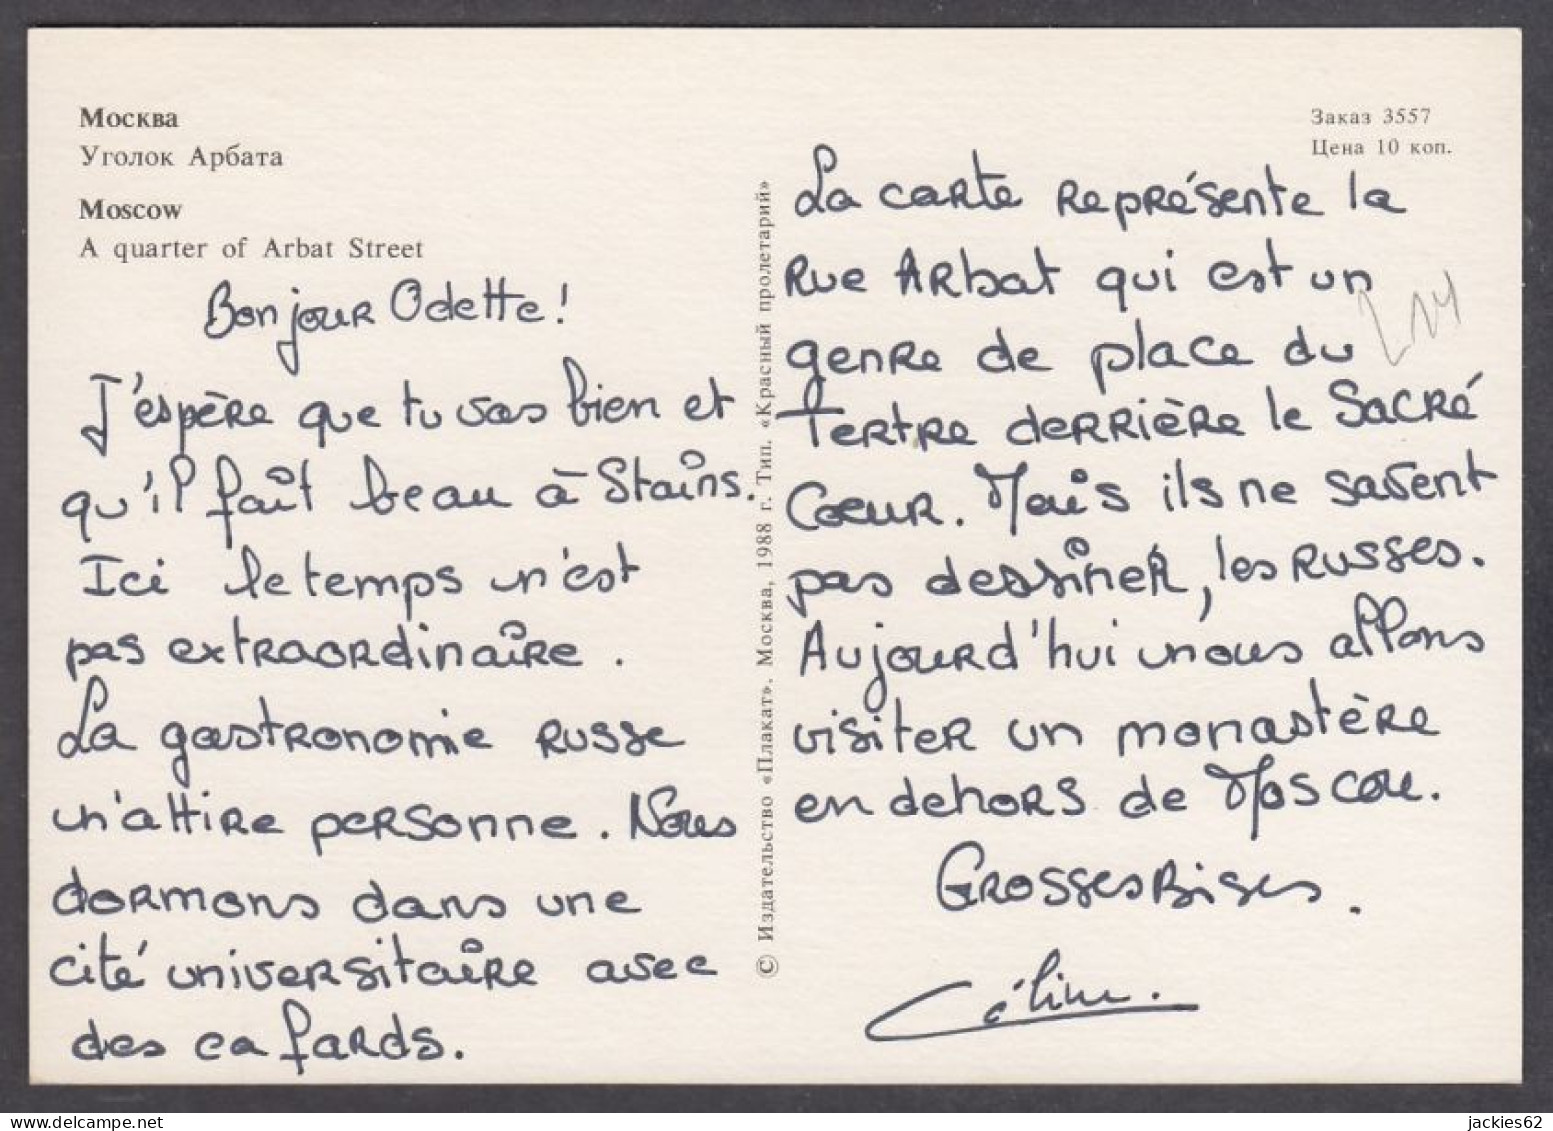 Москва
Уголок Арбата
Moscow
A quarter of Arbat Street
Bonjour Odette!
J'espère que tu vas bien et
qu'il fait beau à Stains.
Ici le temps n'est
pas extraordinaire.
La gastronomie russe
n'attire personne. Nous
dormons dans une
cité universitaire avec
des cafards.
© Издательство «Плакат». Москва, 1988 г. Тип. «Красный пролетарий»
Заказ 3557
Цена 10 коп.
La carte représente la
rue Arbat qui est un
genre de place du
Tertre derrière le Sacré
Coeur. Mais ils ne savent
pas dessiner, les russes.
Aujourd'hui nous allons
visiter un monastère
en dehors de Moscou.
Grosses Bises.
Céline.
jackies62